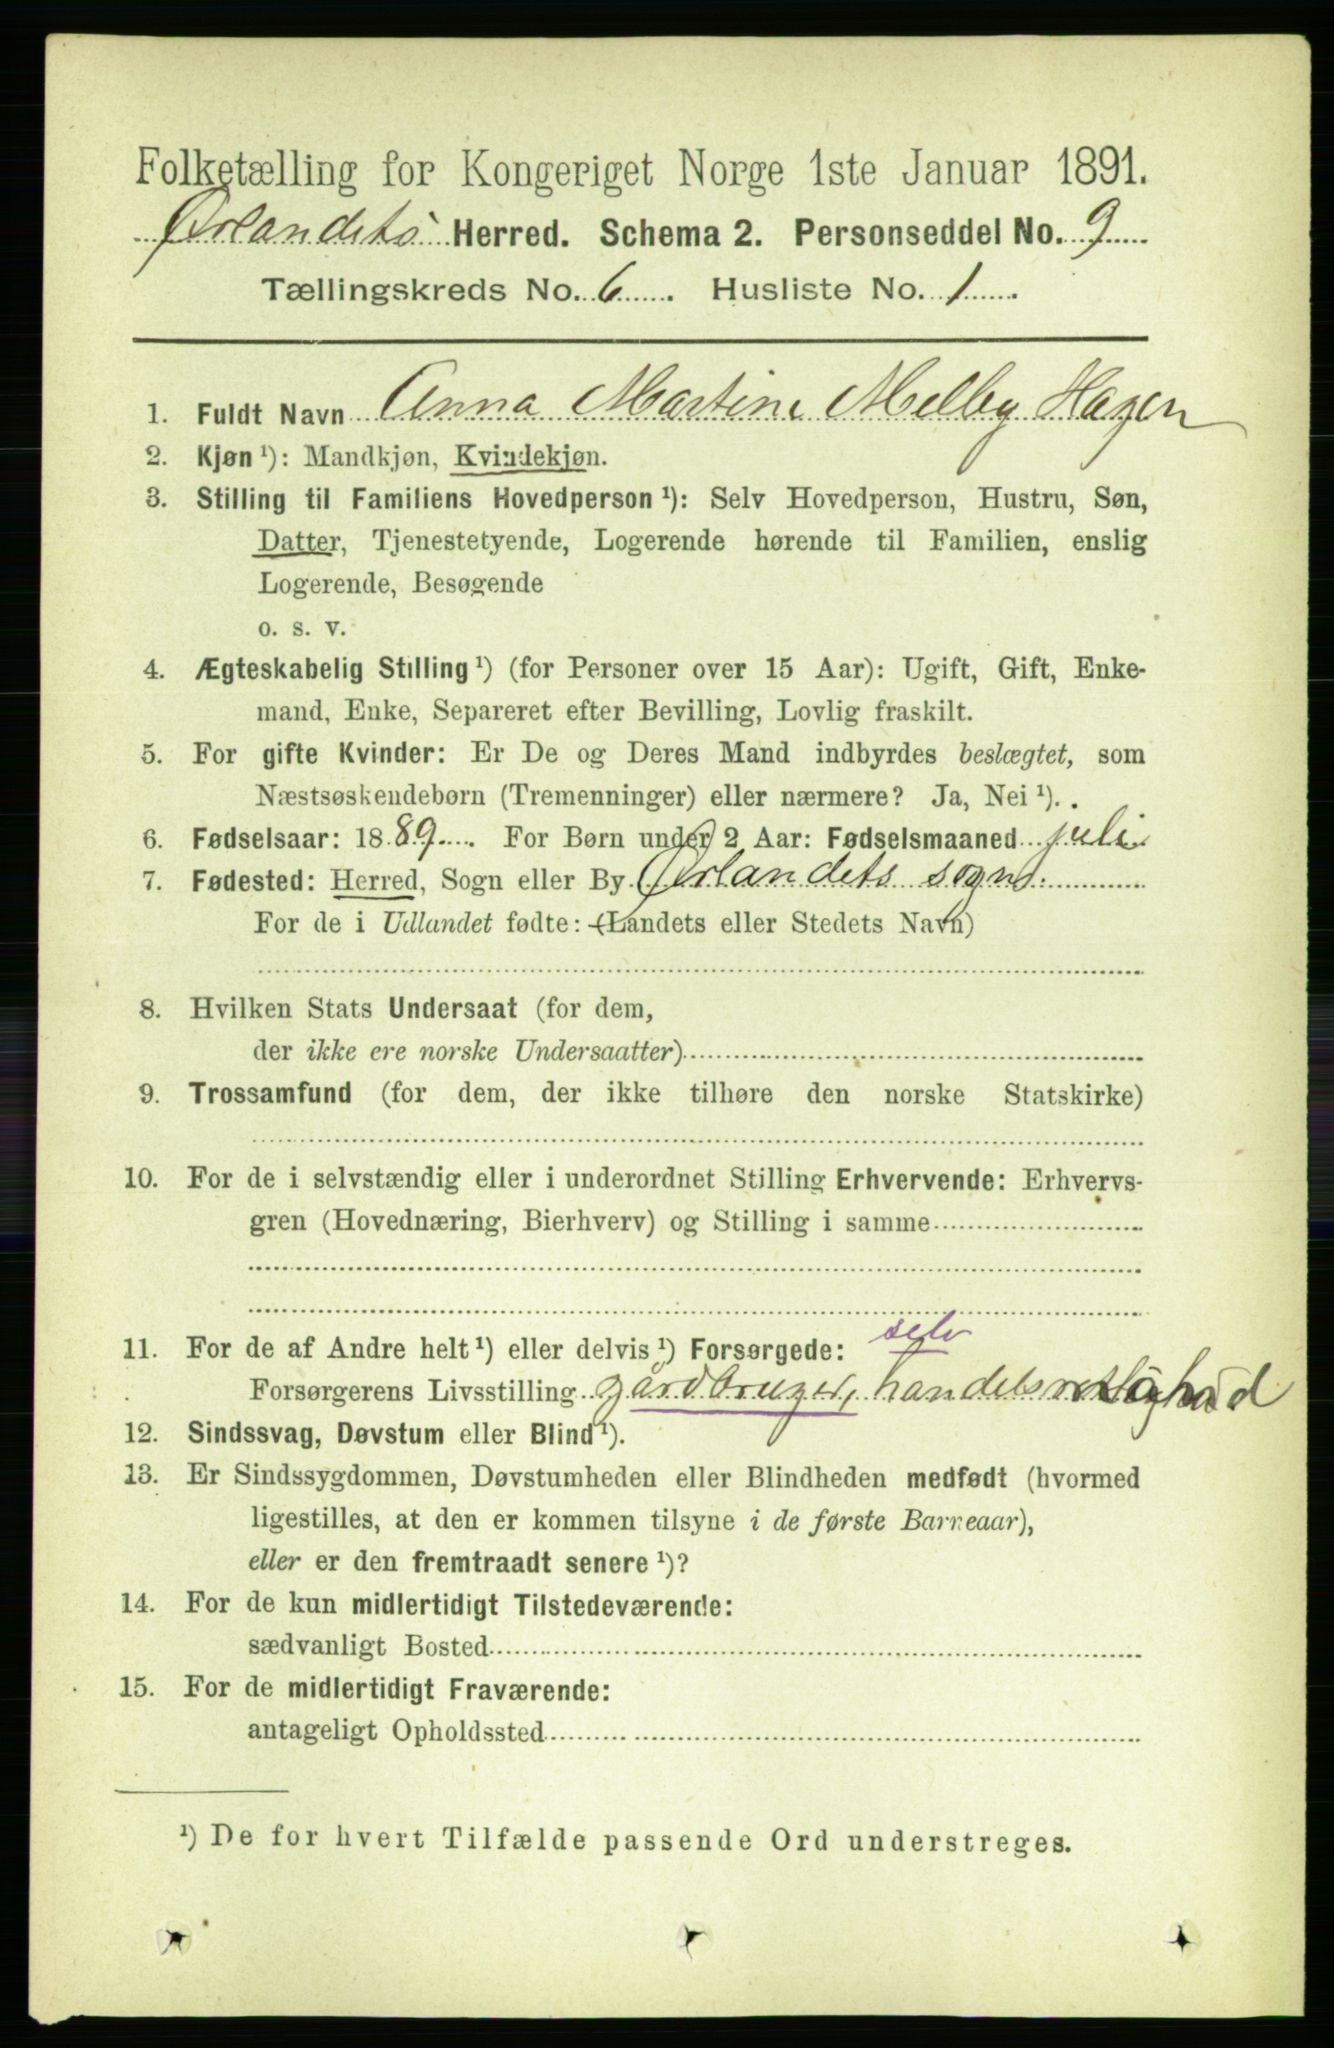 Folketælling for Kongeriget Norge 1ste Januar 1891.
Ørlandets Herred. Schema 2. Personseddel No. 9
Tællingskreds No. 6 Husliste No. 1
1. Fuldt Navn Anna Martine Melby Hagen
2. Kjøn ¹): Mandkjøn, Kvindekjøn.
3. Stilling til Familiens Hovedperson ¹): Selv Hovedperson, Hustru, Søn,
Datter, Tjenestetyende, Logerende hørende til Familien, enslig
Logerende, Besøgende
o. s. v.
4. Ægteskabelig Stilling ¹) (for Personer over 15 Aar): Ugift, Gift, Enke-
mand, Enke, Separeret efter Bevilling, Lovlig fraskilt.
5. For gifte Kvinder: Er De og Deres Mand indbyrdes beslægtet, som
Næstsøskendebørn (Tremenninger) eller nærmere? Ja, Nei ¹).
6. Fødselsaar: 1889. For Børn under 2 Aar: Fødselsmaaned juli
7. Fødested: Herred, Sogn eller By Ørlandets sogn
For de i Udlandet fødte: (Landets eller Stedets Navn)
8. Hvilken Stats Undersaat (for dem,
der ikke ere norske Undersaatter)
9. Trossamfund (for dem, der ikke tilhøre den norske Statskirke)
10. For de i selvstændig eller i underordnet Stilling Erhvervende: Erhvervs-
gren (Hovednæring, Bierhverv) og Stilling i samme
11. For de af Andre helt ¹) eller delvis ¹) Forsørgede: selv
Forsørgerens Livsstilling gårdbruger, handelsrettighed
12. Sindssvag, Døvstum eller Blind ¹).
13. Er Sindssygdommen, Døvstumheden eller Blindheden medfødt (hvormed
ligestilles, at den er kommen tilsyne i de første Barneaar),
eller er den fremtraadt senere ¹)?
14. For de kun midlertidigt Tilstedeværende:
sædvanligt Bosted
15. For de midlertidigt Fraværende:
antageligt Opholdssted
¹) De for hvert Tilfælde passende Ord understreges.